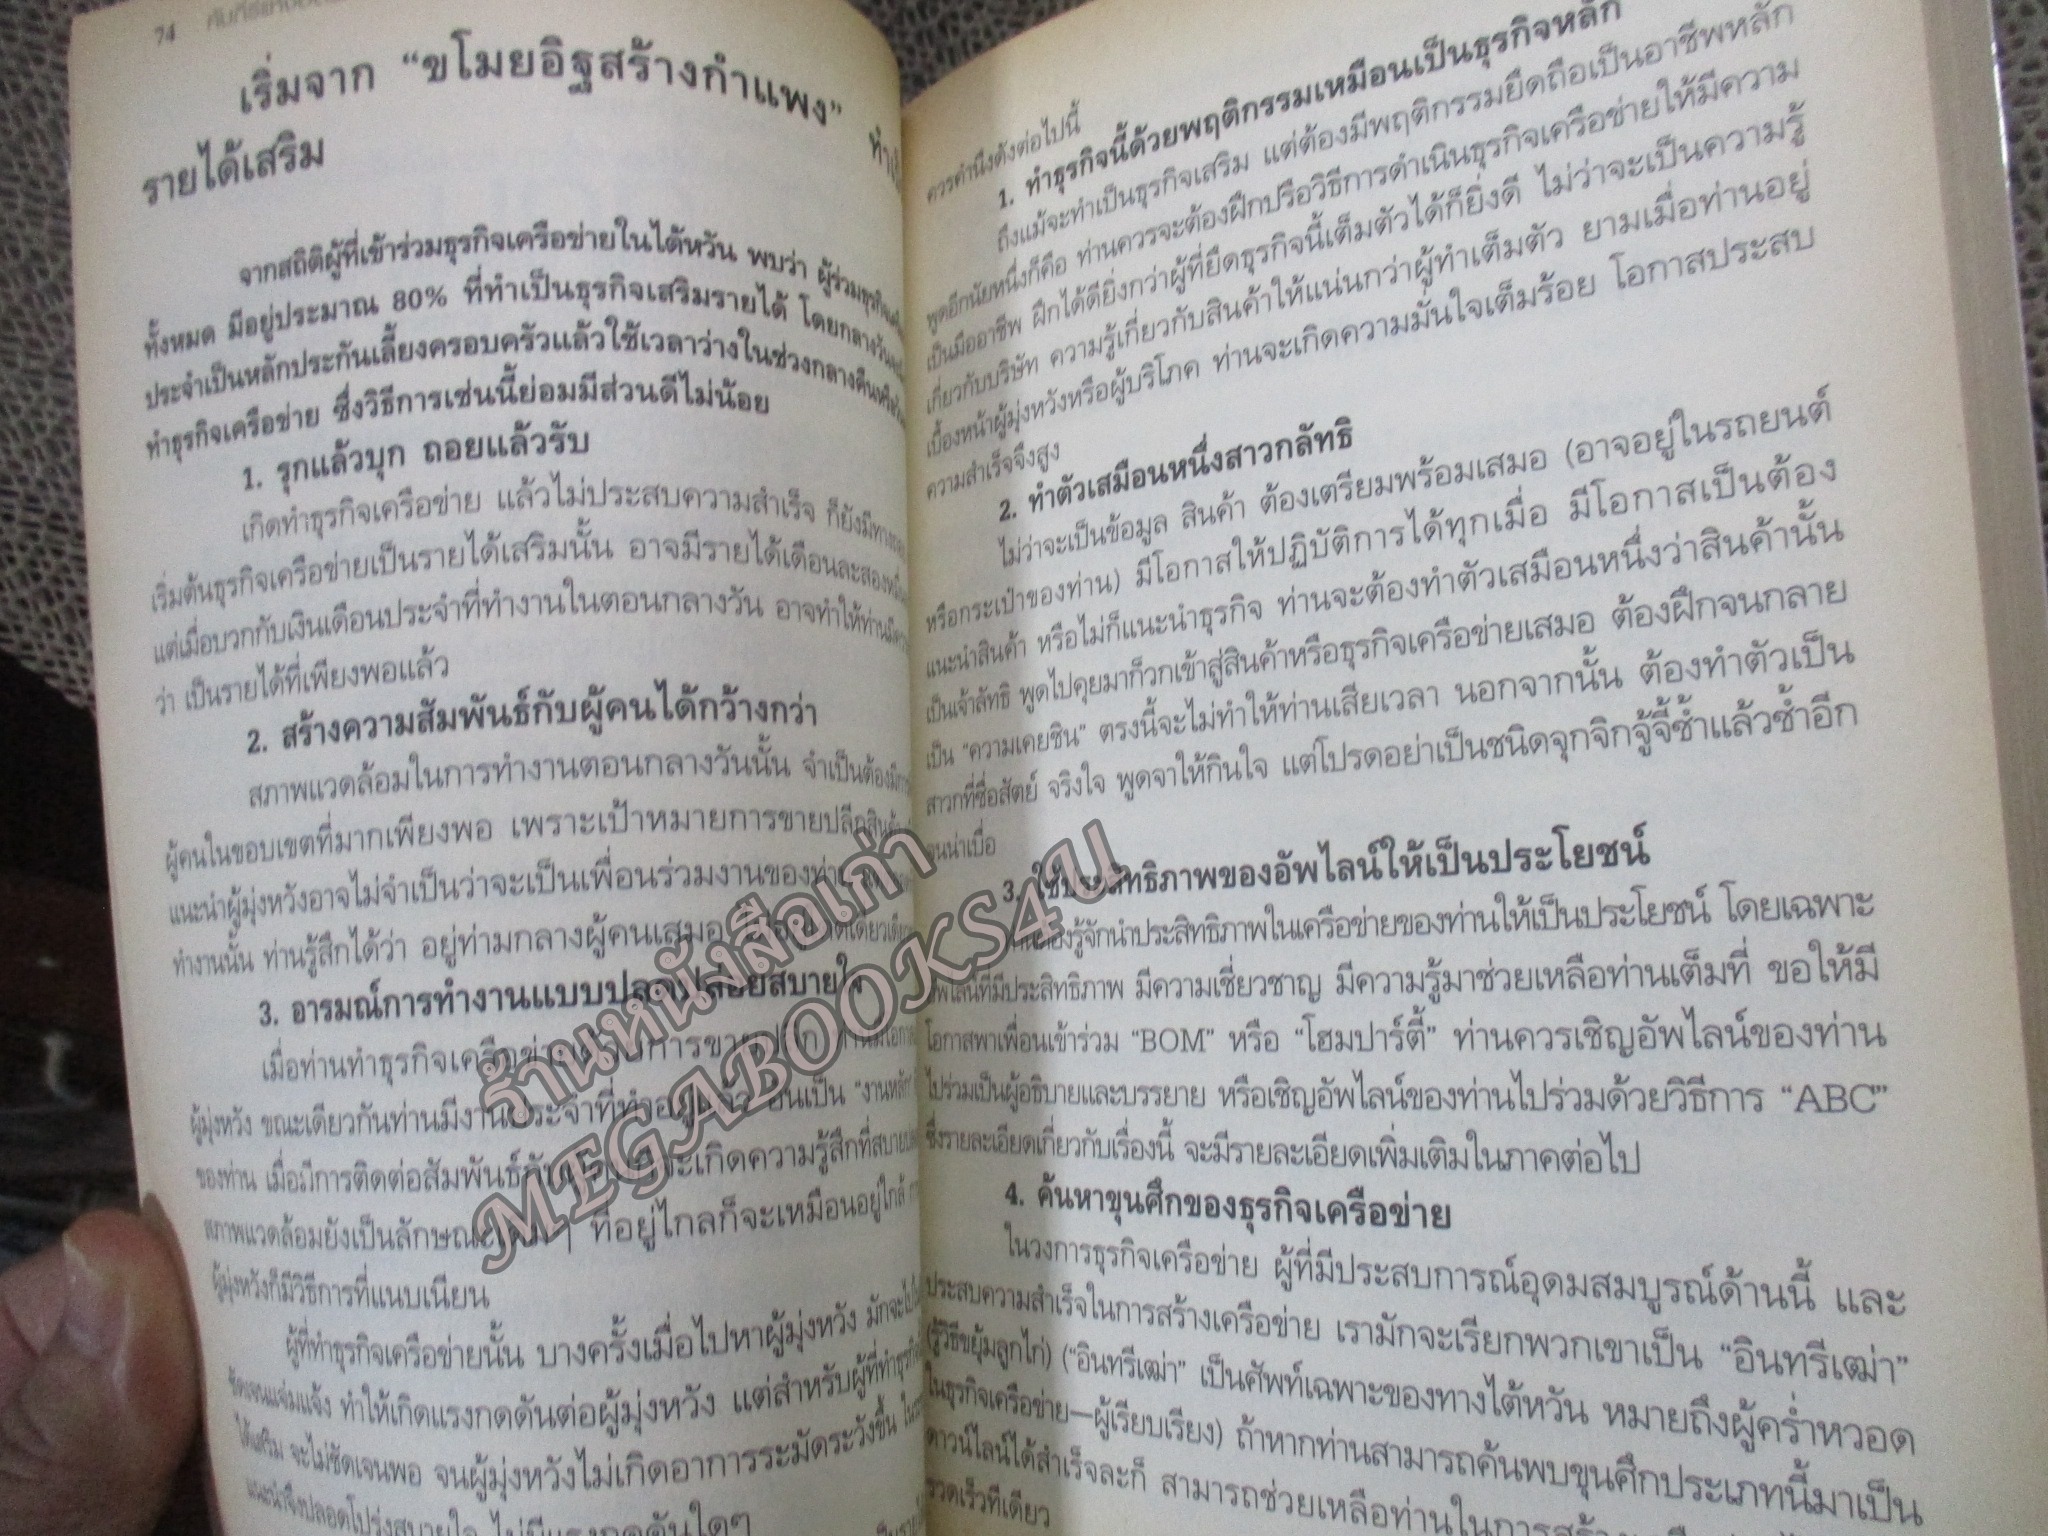 74
เริ่มจาก “ขโมยอิฐสร้างกำแพง”
รายได้เสริม
จากสถิติผู้ที่เข้าร่วมธุรกิจเครือข่ายในไต้หวัน พบว่า
ทั้งหมด มีอยู่ประมาณ 80% ที่ทำเป็นธุรกิจเสริมรายได้
ประจำเป็นหลักประกันเลี้ยงครอบครัวแล้วใช้เวลาว่างในช่วงกลางคืน
ทำธุรกิจเครือข่าย ซึ่งวิธีการเช่นนี้ย่อมมีส่วนดีไม่น้อย
1. รุกแล้วบุก ถอยแล้วรับ
เกิดทำธุรกิจเครือข่าย แล้วไม่ประสบความสำเร็จ
เริ่มต้นธุรกิจเครือข่ายเป็นรายได้เสริมนั้น
แต่เมื่อบวกกับเงินเดือนประจำที่ทำงานในตอนกลางวัน
ว่า เป็นรายได้ที่เพียงพอแล้ว
2. สร้างความสัมพันธ์กับผู้คนได้กว้างกว่า
สภาพแวดล้อมในการทำงานตอนกลางวันนั้น
ผู้คนในขอบเขตที่มากเพียงพอ เพราะเป้าหมายการขายปลีก
แนะนำผู้มุ่งหวังอาจไม่จำเป็นว่าจะเป็นเพื่อนร่วมงานของ
ทำงานนั้น ท่านรู้สึกได้ว่า อยู่ท่ามกลางผู้คนเสมอ
3. อารมณ์การทำงานแบบปลอดปล่อยสบายใจ
เมื่อท่านทำธุรกิจเครือข่าย
ผู้มุ่งหวัง ขณะเดียวกันท่านมีงานประจำที่ “งานหลัก”
ของท่าน เมื่อมีการติดต่อสัมพันธ์กับ เกิดความรู้สึกที่
สภาพแวดล้อมยังเป็นลักษณะ ที่อยู่ไกลก็จะเหมือนอยู่ใกล้
ผู้มุ่งหวังก็มีวิธีการที่แนบเนียน
ผู้ที่ทำธุรกิจเครือข่ายนั้น บางครั้งเมื่อไปหาผู้มุ่งหวัง
ชัดเจนแจ่มแจ้ง ทำให้เกิดแรงกดดันต่อผู้มุ่งหวัง แต่สำหรับผู้ที่
ได้เสริม จะไม่ชัดเจนพอ จนผู้มุ่งหวังไม่เกิดอาการระมัดระวังขึ้น
แนะนำจึงปลอดโปร่งสบายใจ ไม่มีแรงกดดันใดๆ
ควรคำนึงดังต่อไปนี้
1. ทำธุรกิจนี้ด้วยพฤติกรรมเหมือนเป็นธุรกิจหลัก
ถึงแม้จะทำเป็นธุรกิจเสริม แต่ต้องมีพฤติกรรมยึดถือเป็นอาชีพหลัก
พูดอีกนัยหนึ่งก็คือ ท่านควรจะต้องฝึกปรือวิธีการดำเนินธุรกิจเครือข่ายให้มีความ
เป็นมืออาชีพ ฝึกได้ดียิ่งกว่าผู้ที่ยึดธุรกิจนี้เต็มตัวได้ก็ยิ่งดี ไม่ว่าจะเป็นความรู้
เกี่ยวกับบริษัท ความรู้เกี่ยวกับสินค้าให้แน่นกว่าผู้ทำเต็มตัว ยามเมื่อท่านอยู่
เบื้องหน้าผู้มุ่งหวังหรือผู้บริโภค ท่านจะเกิดความมั่นใจเต็มร้อย โอกาสประสบ
ความสำเร็จจึงสูง
2. ทำตัวเสมือนหนึ่งสาวกลัทธิ
ไม่ว่าจะเป็นข้อมูล สินค้า ต้องเตรียมพร้อมเสมอ (อาจอยู่ในรถยนต์
หรือกระเป๋าของท่าน) มีโอกาสให้ปฏิบัติการได้ทุกเมื่อ มีโอกาสเป็นต้อง
แนะนำสินค้า หรือไม่ก็แนะนำธุรกิจ ท่านจะต้องทำตัวเสมือนหนึ่งว่าสินค้านั้น
เป็นเจ้าลัทธิ พูดไปคุยมาก็วกเข้าสู่สินค้าหรือธุรกิจเครือข่ายเสมอ ต้องฝึกจนกลาย
เป็น “ความเคยชิน” ตรงนี้จะไม่ทำให้ท่านเสียเวลา นอกจากนั้น ต้องทำตัวเป็น
สาวกที่ซื่อสัตย์ จริงใจ พูดจาให้กินใจ แต่โปรดอย่าเป็นชนิดจุกจิกจู้จี้ซ้ำแล้วซ้ำอีก
จนน่าเบื่อ
3. ใช้ประสิทธิภาพของอัพไลน์ให้เป็นประโยชน์
ต้องรู้จักนำประสิทธิภาพในเครือข่ายของท่านให้เป็นประโยชน์ โดยเฉพาะ
อัพไลน์ที่มีประสิทธิภาพ มีความเชี่ยวชาญ มีความรู้มาช่วยเหลือท่านเต็มที่ ขอให้มี
โอกาสพาเพื่อนเข้าร่วม “BOM” หรือ “โฮมปาร์ตี้” ท่านควรเชิญอัพไลน์ของท่าน
ไปร่วมเป็นผู้อธิบายและบรรยาย หรือเชิญอัพไลน์ของท่านไปร่วมด้วยวิธีการ “ABC”
ซึ่งรายละเอียดเกี่ยวกับเรื่องนี้ จะมีรายละเอียดเพิ่มเติมในภาคต่อไป
4. ค้นหาขุนศึกของธุรกิจเครือข่าย
ในวงการธุรกิจเครือข่าย ผู้ที่มีประสบการณ์อุดมสมบูรณ์ด้านนี้ และ
ประสบความสำเร็จในการสร้างเครือข่าย เรามักจะเรียกพวกเขาเป็น “อินทรีเฒ่า”
(รู้วิธีขยุ้มลูกไก่) (“อินทรีเฒ่า” เป็นศัพท์เฉพาะของทางไต้หวัน หมายถึงผู้คร่ำหวอด
ในธุรกิจเครือข่าย—ผู้เรียบเรียง) ถ้าหากท่านสามารถค้นพบขุนศึกประเภทนี้มาเป็น
ดาวน์ไลน์ได้สำเร็จละก็ สามารถช่วยเหลือท่านในการสร้าง
รวดเร็วทีเดียว
ร้านหนังสือเก่า
MEGABOOKS4U